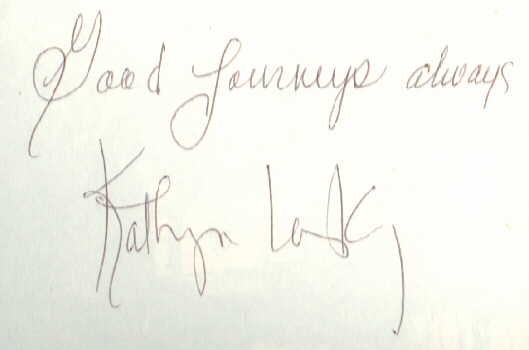 Good journeys always
Kathryn Lasky